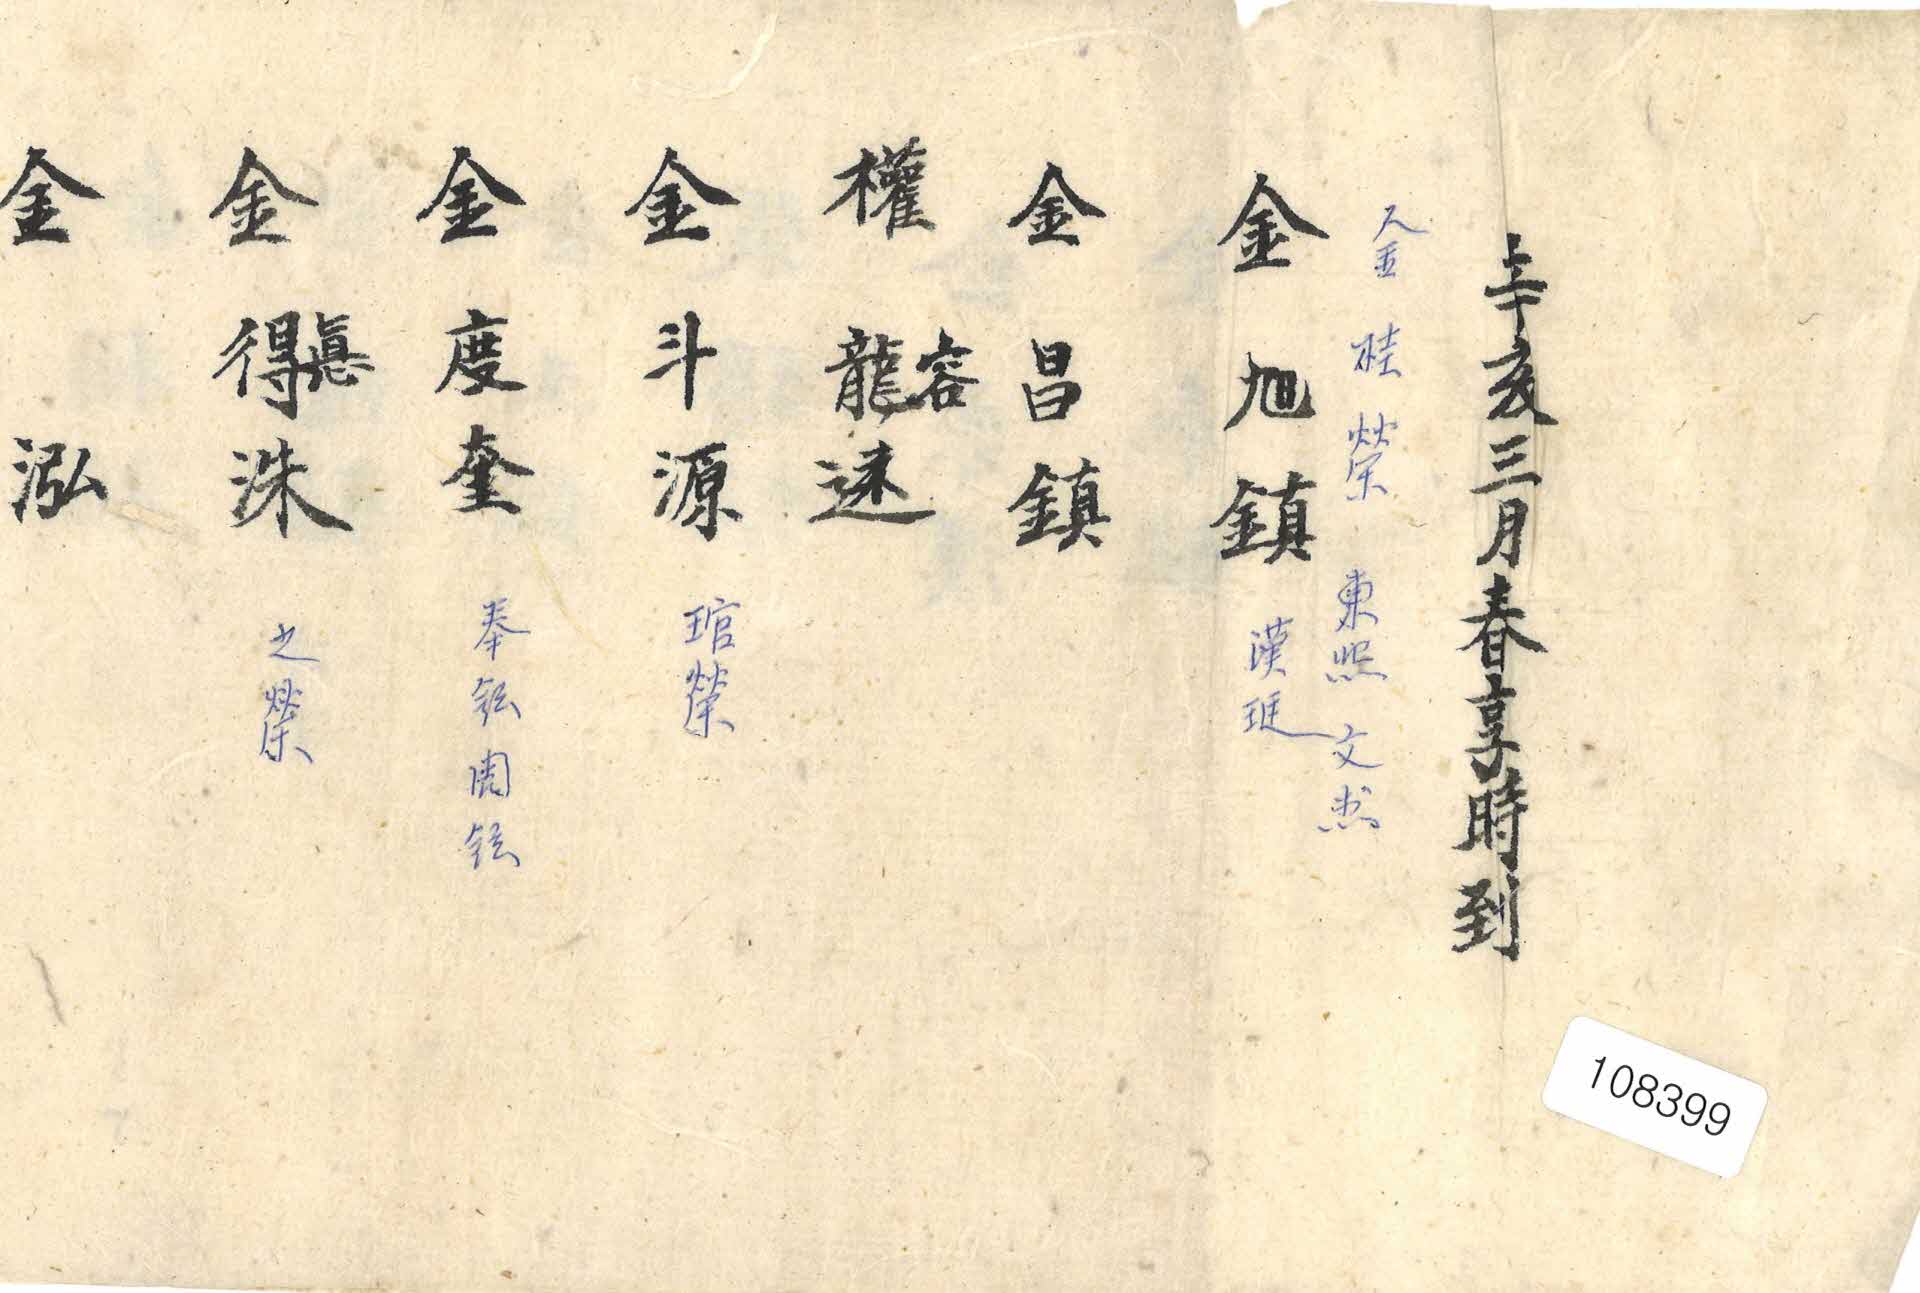 辛亥三月春享時到
金 桂榮 東熙 文烋
金旭鎮 漢珽
金昌鎮
權龍述 容
金斗源 琯榮
金度奎 奉鉉周鉉
金得洙 悳 之榮
金泓
108399